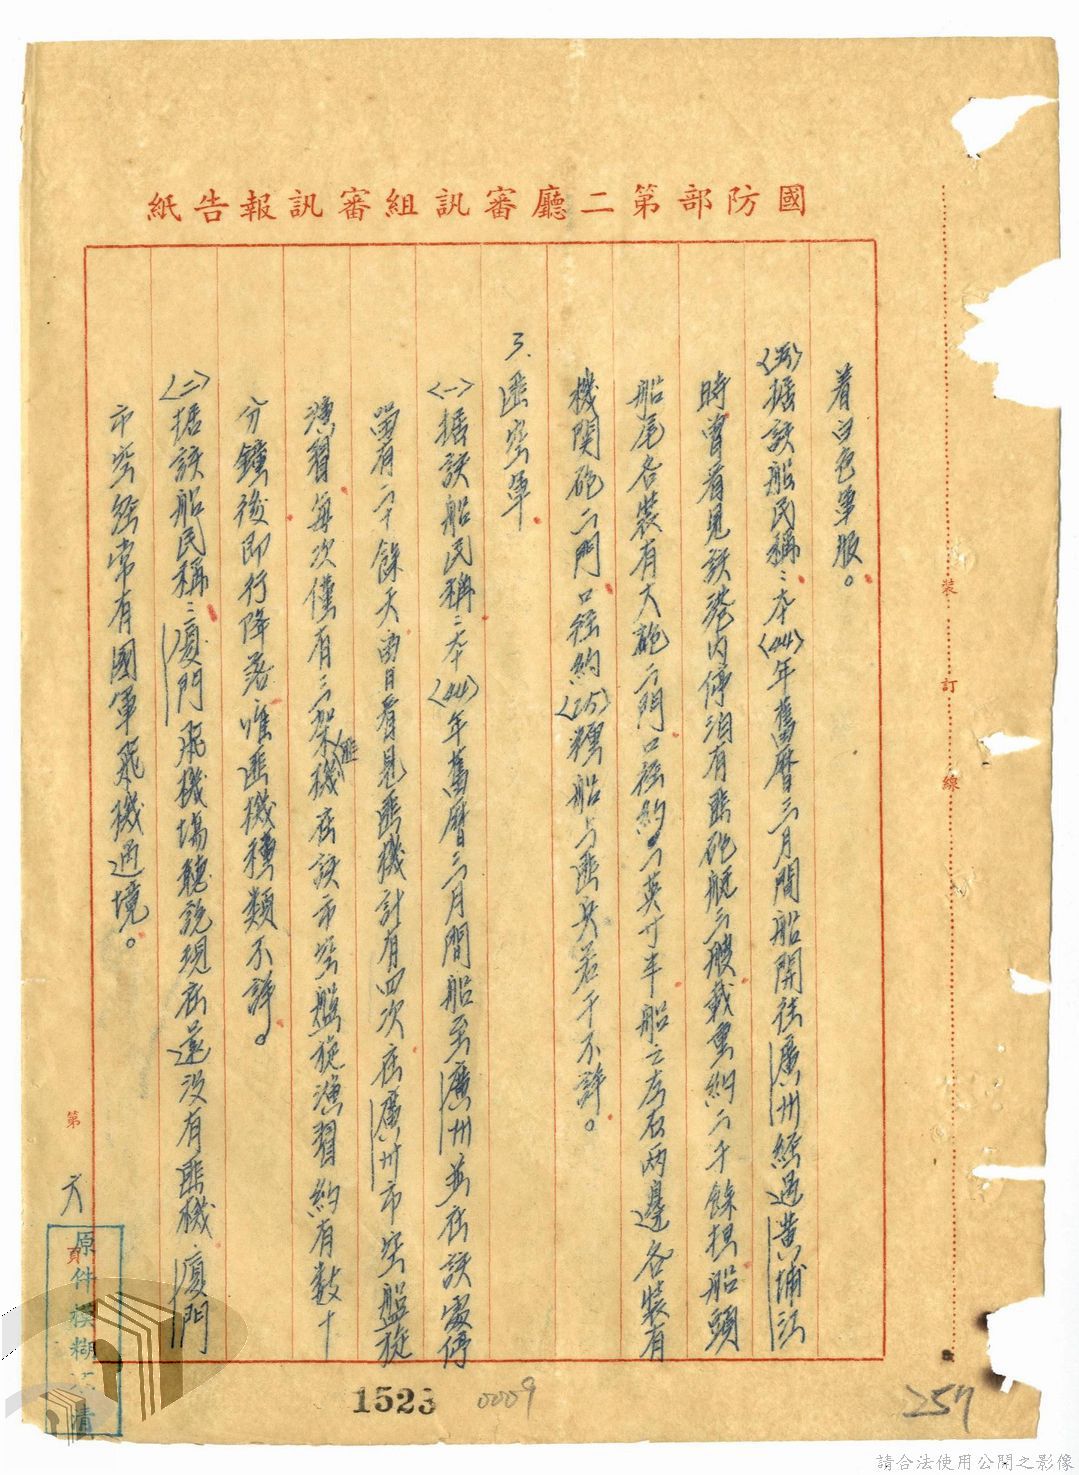 國防部第二廳審訊組審訊報告紙
着白色軍服。
據該船民稱：本〈44〉年舊曆三月間船開往廣州經過黃埔江
時曾看見該港內停泊有匪砲艇三艘載重約二千餘担船頭
船尾各裝有大砲一門口徑約一英寸半船之左右兩邊各裝有
機関砲一門口徑約〈25〉糎船上匪兵若干不詳。
3.匪空軍
〈一〉據該船民稱：本〈44〉年舊曆三月間船至廣州並在該處停
留有二十餘天曾看見匪機計有四次在廣州市空盤旋
演習每次僅有三架〈匪〉機在該市空盤旋演習約有數十
分鐘後即行降落惟匪機種類不詳。
〈二〉据該船民稱：廈門飛機場聽說現在還没有匪機、廈門
市空經常有國軍飛機過境。
裝訂線
第六頁
原件模糊不清
1523
0009
257
請合法使用公開之影像